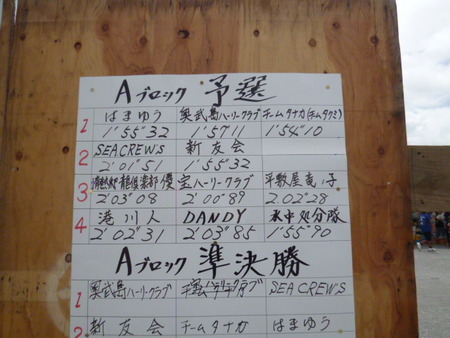 Aブロック 予選
1 はまゆう 奥武島ハーリークラブ チームタナカ(チムタクミ)
1'55"32 1'57"11 1'54"10
2 SEACREWS 新友会
2'01"51 1'55"32
3 龍倶楽部 宝ハーリークラブ 平敷屋竜ノ子
2'03"08 2'00"89 2'02"28
4 港川人 DANDY 水中処分隊
2'02"31 2'03"85 1'55"90
Aブロック 準決勝
1 奥武島ハーリークラブ SEA CREWS
2 新友会 チームタナカ はまゆう